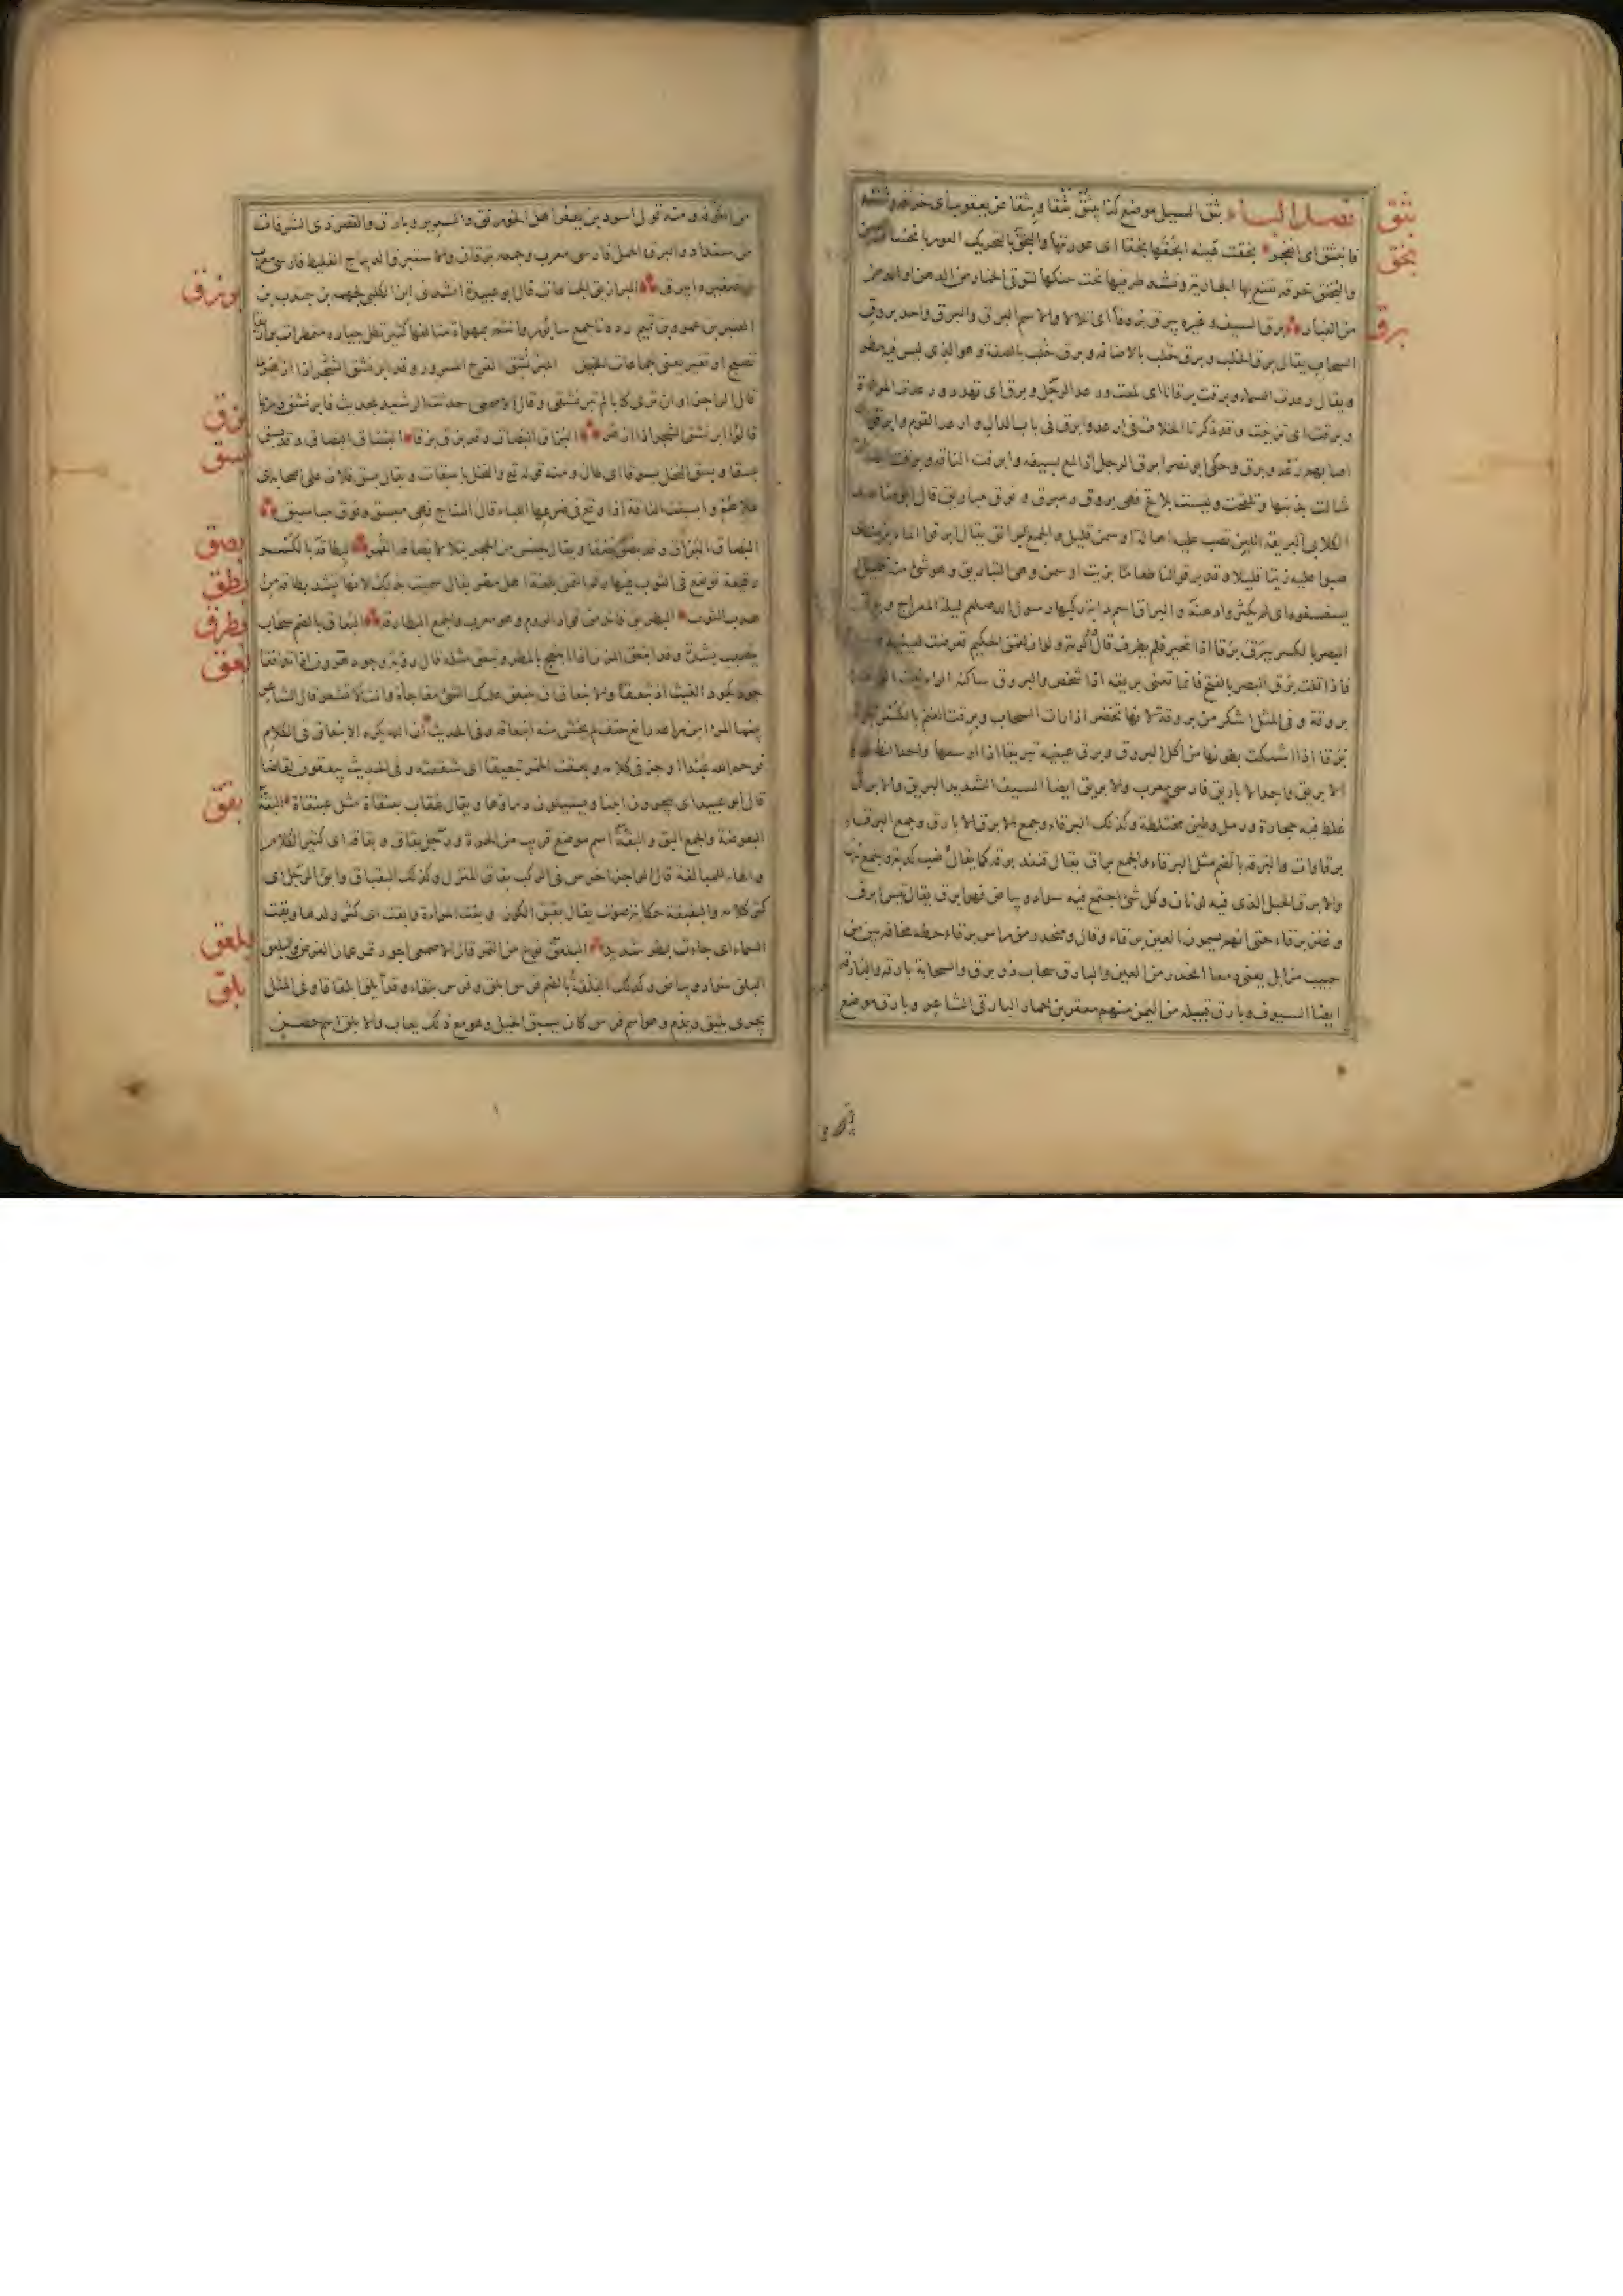 بثق
فصل الباء بثق السيل موضع كذا يبثق بثقا وبثقا عن يعقوب اى خرقه وشقه
بخق
فانبثق اى انفجر بخقت عينه ابخقها بخقا اى عورتها والبخق بالتحريك العور بانخساف العين
والبخنق خرقة تقنع بها الجارية وتشد طرفيها تحت حنكها لتوقى الخمار من الدهن او الدهن
برق
من الغبار برق السيف وغيره يبرق بروقا اى تلالا والاسم البريق والبرق واحد بروق
السحاب يقال برق الخلب وبرق خلب بالاضافة وبرق خلب بالصفة وهو الذى ليس فيه مطر
ويقال رعدت السماء وبرقت برقانا اى لمعت ورعد الرجل وبرق اى تهدد ورعدت المراة
وبرقت اى تزينت وقد ذكرنا الخلاف فى ارعد وابرق فى باب الدال وارعد القوم وابرقوا
اصابهم رعد وبرق وحكى ابو نصر ابرق الرجل اذا لمع بسيفه وابرقت الناقة وبرقت ايضا
شالت بذنبها وتلقحت وليست بلاقح فهى بروق ومبرق ونوق مباريق قال ابو صاعد
الكلابى البريقة اللبن تصب عليه اهالة او سمن قليل والجمع البرائق يقال ابرقوا الماء بزيت اى
صبوا عليه زيتا قليلا وقد برقوا لنا طعاما بزيت او سمن وهى التباريق وهو شئ منه قليل
يسغسغوه اى لم يكثروا دهنه والبراق اسم دابة ركبها رسول الله صلعم ليلة المعراج وبرق
البصر بالكسر يبرق برقا اذا تحير فلم يطرف قال ذو الرمة ولو ان لقمن الحكيم تعرضت لعينيه
فاذا قلت برق البصر بالفتح فانما تعنى بريقه اذا شخص والبروق ساكنة الراء نبت الواحدة
بروقة وفى المثل اشكر من بروقة لانها تخضر اذا رات السحاب وبرقت الغنم بالكسر تبرق
برقا اذا اشتكت بطونها من اكل البروق وبرق عينيه تبريقا اذا اوسعها واحد النظر
الابريق واحد الاباريق فارسى معرب والابريق ايضا السيف الشديد البريق والابرق
غلظ فيه حجارة ورمل وطين مختلطة وكذلك البرقاء وجمع الابرق الابارق وجمع البرقاء
برقاوات والبرقة بالضم مثل البرقاء والجمع براق يقال قنفذ برقة كما يقال ضب كدية
والابرق الحبل الذى فيه لونان وكل شئ اجتمع فيه سواد وبياض فهو ابرق يقال تيس ابرق
وعنز برقاء حتى انهم يسمون العين برقاء وقال ومنحدر من راس برقاء حطه مخافة بين من
حبيب مزايل يعنى دمعا انحدر من العين والبارق سحاب ذو برق والسحابة بارقة والبارقة
ايضا السيوف وبارق قبيلة من اليمن منهم معقر بن حمار البارقى الشاعر وبارق موضع
من الكوفة ومنه قول اسود بن يعفر اهل الخورنق والسدير وبارق والقصر ذى الشرفات
من سنداد والبرق الحمل فارسى معرب وجمعه برقان والاستبرق الديباج الغليظ فارسى معرب
بزرق
وتصغيره ابيرق البرازيق الجماعات قال ابو عبيدة انشدنى ابن الكلبى لجهمة بن جندب بن
العنبر بن عمرو بن تميم رددنا جمع سابور وانتم بمهواة متالفها كثير تظل جياده متمطرات برازيقا
تصبح او تغير يعنى جماعات الخيل ابرنشق الفرح المسرور وقد ابرنشق الشجر اذا ازهر
قال الراجز او ان ترى كاباء لم تبرنشقى وقال الاصمعى حدثت الرشيد بحديث فابرنشق
بزق
قالوا ابرنشق الشجر اذا ازهر البزاق البصاق وقد بزق بزقا البساق البصاق وقد بسق
بسق
بسقا وبسق النخل بسوقا اى طال ومنه قوله تع والنخل باسقات ويقال بسق فلان على اصحابه اى
علاهم وابسقت الناقة اذا وقع فى ضرعها اللباء قبل النتاج فهى مبسق ونوق مباسيق
بصق
البصاق البزاق وقد بصق بصقا ويقال لحجر ابيض يتلالا بصاقة القمر
بطق
البطاقة بالكسر رقيعة توضع فى الثوب فيها رقم الثمن بلغة اهل مصر يقال سميت بذلك لانها تشد بطاقة من
بطرق
هدب الثوب البطريق قائد من قواد الروم وهو معرب والجمع البطارقة البعاق بالضم سحاب
بعق
يتصبب بشدة وقد انبعق المزن اذا انبعج بالمطر وتبعق مثله قال رؤبة وجود هرون اذا تدفقا
جود كجود الغيث اذ تبعقا والانبعاق ان ينبعق عليك الشئ مفاجاة وانت لا تشعر قال الشاعر
بينما المرء امن راعه رائع حتف لم يخش منه انبعاقه وفى الحديث ان الله يكره الانبعاق فى الكلام
فرحم الله عبدا اوجز فى كلامه وبعقت الخمر تبعيقا اى شققته وفى الحديث يبعقون لقاحنا
بقق
قال ابو عبيد اى ينحرون ابلنا ويسيلون دماءها ويقال عقاب بعنقاة مثل عبنقاة البقة
البعوضة والجمع البق والبقة اسم موضع قريب من الحيرة ورجل بقاق وبقاقة اى كثير الكلام
والهاء للمبالغة قال الراجز اخرس فى الركب بقاق المنزل وكذلك البقباق وابق الرجل اى
كثر كلامه والبقبقة حكاية صوت يقال بقبق الكوز وبقت المراة وابقت اى كثر ولدها وبقت
بلعق
السماء اى جاءت بمطر شديد البلعق نوع من التمر قال الاصمعى اجود تمر عمان الفرض والبلعق
بلق
البلق سواد وبياض وكذلك البلقة بالضم فرس ابلق وفرس بلقاء وقد ابلق ابلقاقا وفى المثل
يجرى بليق ويذم وهو اسم فرس كان يسبق الخيل وهو مع ذلك يعاب والابلق اسم حصن